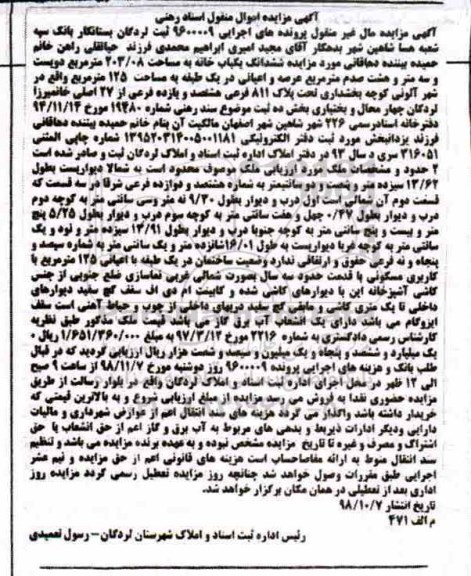 آگهی مزایده اموال منقول اسناد رهنی
آگهی مزایده مال غیر منقول پرونده های اجرایی ۹۶۰۰۰۰۹ ثبت لردگان بستانکار بانک سپه
شعبه هسا شاهین شهر بدهکار آقای مجید امیری ابراهیم محمدی فرزند حیاتقلی راهن خانم
حمیده بیننده دهاقانی مورد مزایده ششدانگ یکباب خانه به مساحت ۲۰۳/۰۸ مترمربع دویست
و سه متر و هشت صدم مترمربع عرصه و اعیانی در یک طبقه به مساحت ۱۲۵ مترمربع واقع در
شهر آلونی کوچه بخشداری تحت پلاک ۸۱۱ فرعی هشتصد و یازده فرعی از ۲۷ اصلی خانمیرزا
لردگان چهار محال و بختیاری بخش ده ثبت موضوع سند رهنی شماره ۱۹۴۸۰ مورخ ۹۴/۱۱/۱۴
دفترخانه اسنادرسمی ۲۲۶ شهر شاهین شهر اصفهان مالکیت آن بنام خانم حمیده بیننده دهاقانی
فرزند یزدانبخش مورد ثبت دفتر الکترونیکی ۱۳۹۵۲۰۳۱۴۰۰۵۰۰۱۱۸۱ شماره چاپی المثنی
۳۱۶۰۵۱ سری د سال ۹۳ در دفتر املاک اداره ثبت اسناد و املاک لردگان ثبت و صادر شده است
۲ حدود و مشخصات ملک مورد ارزیابی ملک موصوف محدود است به شمالا دیواریست بطول
۱۳/۶۲ سیزده متر و شصت و دو سانتیمتر به شماره هشتصد و دوازده فرعی شرقا در سه قسمت که
قسمت دوم آن شمالی است اول درب و دیوار بطول ۹/۳۰ نه متر و سی سانتی متر به کوچه دوم
درب و دیوار بطول ۰/۴۷ چهل و هفت سانتی متر به کوچه سوم درب و دیوار بطول ۵/۲۵ پنج
متر و بیست و پنج سانتی متر به کوچه جنوبا درب و دیوار بطول ۱۳/۹۱ سیزده متر و نود و یک
سانتی متر به کوچه غربا دیواریست به طول ۱۶/۰۱ شانزده متر و یک سانتی متر به شماره سیصد و
پنجاه و نه فرعی حقوق و ارتفاقی ندارد وضعیت ساختمان در یک طبقه با اعیانی ۱۲۵ مترمربع با
کاربری مسکونی با قدمت حدود سه سال بصورت شمالی غربی نماسازی ضلع جنوبی از جنس
کاشی آشپزخانه اپن با دیوارهای کاشی شده و کابینت ام دی اف سقف گچ سفید دیوارهای
داخلی تا یک متری کاشی و مابقی گچ سفید دربهای داخلی از چوب و حیاط آهنی است سقف
ایزوگام می باشد دارای یک انشعاب آب برق گاز می باشد قیمت ملک مذکور طبق نظریه
کارشناس رسمی دادگستری به شماره ۲۲۱۶ مورخ ۹۷/۳/۱۲ به مبلغ ۱/۶۵۱/۳۶۰/۰۰۰ ریال
یک میلیارد و ششصد و پنجاه و یک میلیون و سیصد و شصت هزار ریال ارزیابی گردید که در قبال
طلب بانک و هزینه های اجرایی پرونده ۹۶۰۰۰۰۹ روز دوشنبه مورخ ۹۸/۱۱/۷ از ساعت ۹ صبح
الی ۱۲ ظهر در محل اجرای اداره ثبت اسناد و املاک لردگان واقع در بلوار رسالت از طریق
مزایده حضوری نقدا به فروش می رسد مزایده از مبلغ ارزیابی شروع و به بالاترین قیمتی که
خریدار داشته باشد واگذار می گردد هزینه های سند انتقال اعم از عوارض شهرداری و مالیات
دارایی ودیگر ادارات ذیربط و بدهی های مربوط به آب برق و گاز اعم از حق انشعاب یا حق
اشتراک و مصرف و غیره تا تاریخ مزایده مشخص نبوده و به عهده برنده مزایده می باشد و تنظیم
سند انتقال منوط به ارائه مفاصاحساب است هزینه های قانونی اعم از حق مزایده و نیم عشر
اجرایی طبق مقررات وصول خواهد شد چنانچه روز مزایده تعطیل رسمی گردد مزایده روز
اداری بعد از تعطیلی در همان مکان برگزار خواهد شد.
تاریخ انتشار ۹۸/۱۰/۷
م الف ۴۷۱
رئیس اداره ثبت اسناد و املاک شهرستان لردگان – رسول تعمیدی